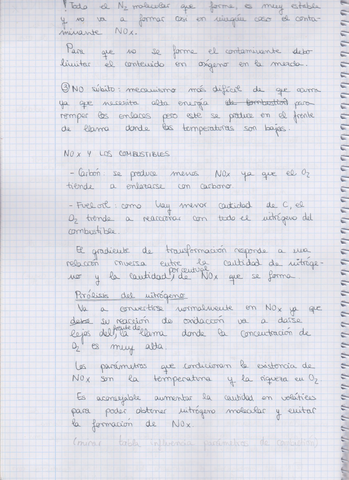 Todo el N₂ molecular que forma, es muy estable
y no va a formar casi en ningún caso el conta-
minante NOx.
Para que no se forme el contaminante debo
limitar el contenido en oxígeno en la mezcla.
③ NO súbito: mecanismo más difícil de que ocurra
ya que necesita alta energía para
romper los enlaces pero este se produce en el frente
de llama donde las temperaturas son bajas.
NOx Y LOS COMBUSTIBLES
- Carbón se produce menos NOx ya que el O₂
tiende a enlazarse con carbono.
- Fueloil: como hay menor cantidad de C, el
O₂ tiende a reaccionar con todo el nitrógeno del
combustible.
El gradiente de transformación responde a una
relación inversa entre la cantidad de nitróge-
no y la cantidad porcentual de NOx que se forma
Pirólisis del nitrógeno
Va a convertirse normalmente en NOx ya que
su reacción de oxidación va a darse
lejos del frente de la llama donde la concentración de
O₂ es muy alta.
Los parámetros que condicionan la existencia de
NOx son la temperatura y la riqueza en O₂
Es aconsejable aumentar la cantidad en volátiles
para poder obtener nitrógeno molecular y evitar
la formación de NOx.